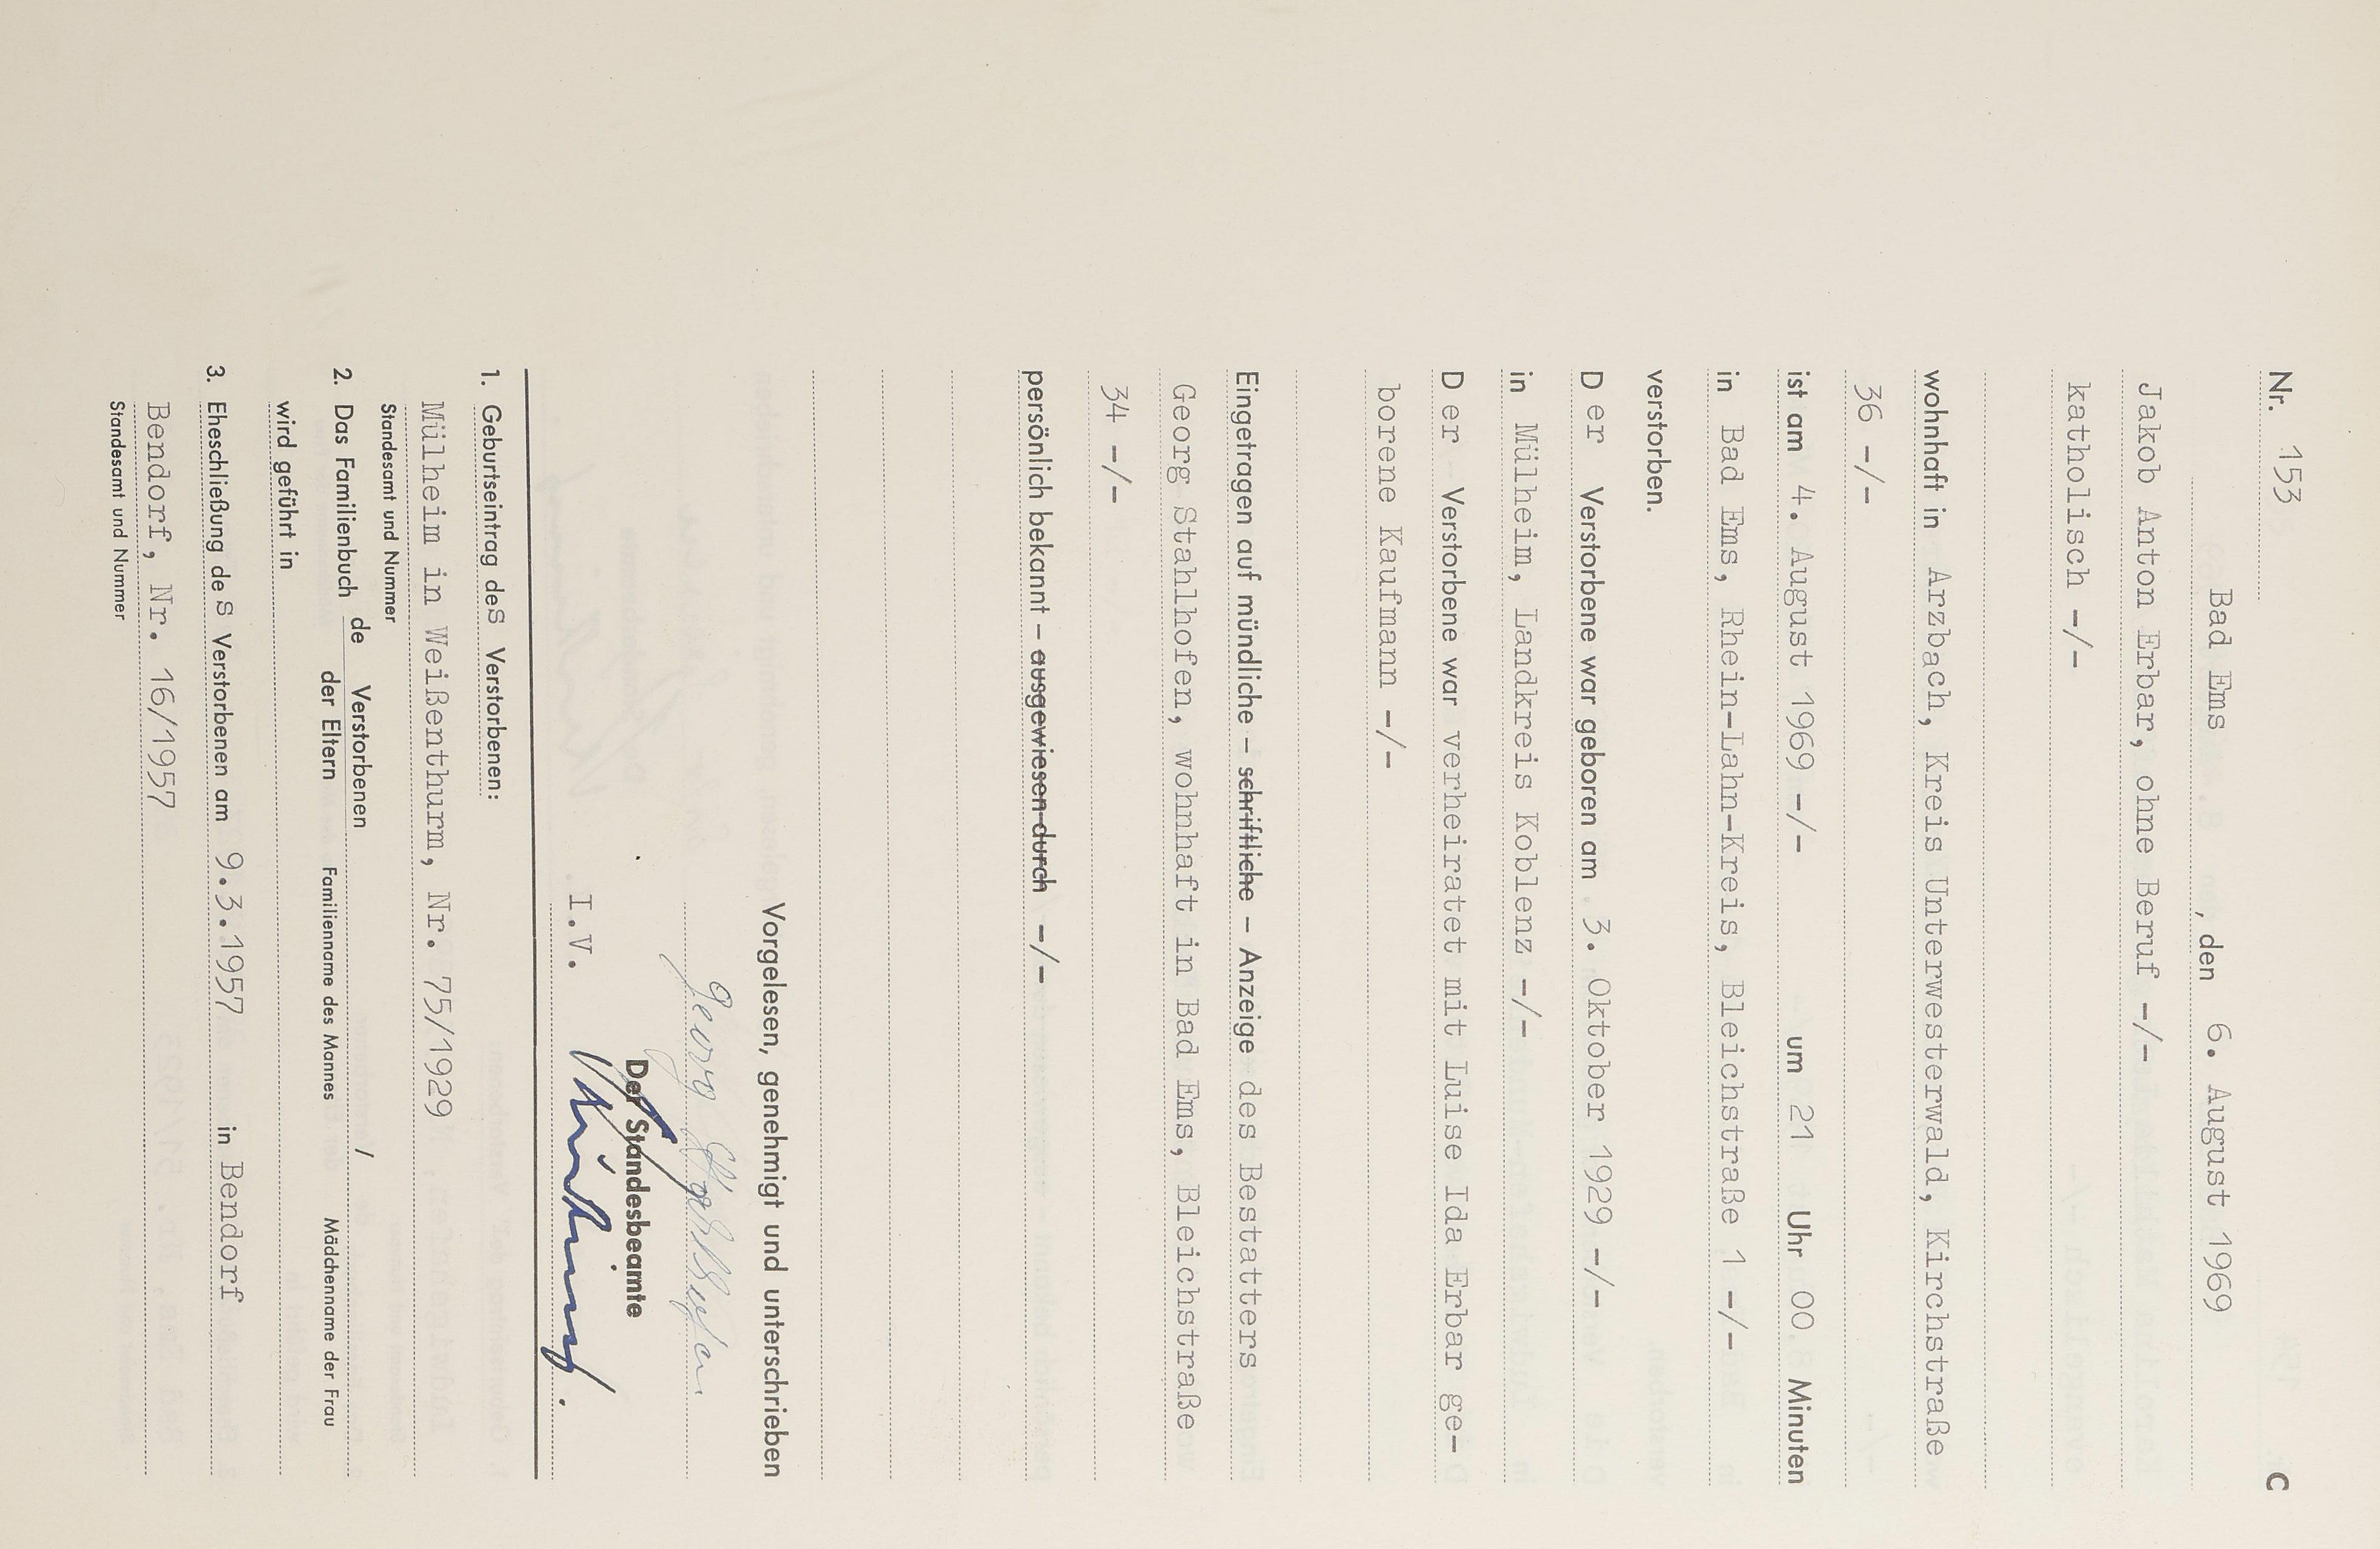 Nr. 153 C
Bad Ems, den 6. August 1969
Jakob Anton Erbar, ohne Beruf -/-
katholisch -/-
wohnhaft in Arzbach, Kreis Unterwesterwald, Kirchstraße
36 -/-
ist am 4. August 1969 -/- um 21 Uhr 00 Minuten
in Bad Ems, Rhein-Lahn-Kreis, Bleichstraße 1 -/-
verstorben.
Der Verstorbene war geboren am 3. Oktober 1929 -/-
in Mülheim, Landkreis Koblenz -/-
Der Verstorbene war verheiratet mit Luise Ida Erbar ge-
borene Kaufmann -/-
Eingetragen auf mündliche – schriftliche – Anzeige des Bestatters
Georg Stahlhofen, wohnhaft in Bad Ems, Bleichstraße
34 -/-
persönlich bekannt – ausgewiesen durch -/-
Vorgelesen, genehmigt und unterschrieben
Georg Stahlhofen
Der Standesbeamte
I.V.
1. Geburtseintrag des Verstorbenen:
Mülheim in Weißenthurm, Nr. 75/1929
Standesamt und Nummer
2. Das Familienbuch de Verstorbenen /
der Eltern Familienname des Mannes Mädchenname der Frau
wird geführt in
3. Eheschließung des Verstorbenen am 9.3.1957 in Bendorf
Bendorf, Nr. 16/1957
Standesamt und Nummer